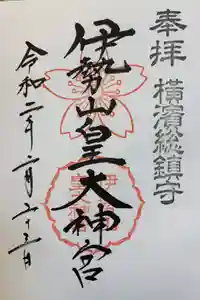 奉拝 横濱総鎮守
伊勢山皇大神宮
令和二年二月二十三日